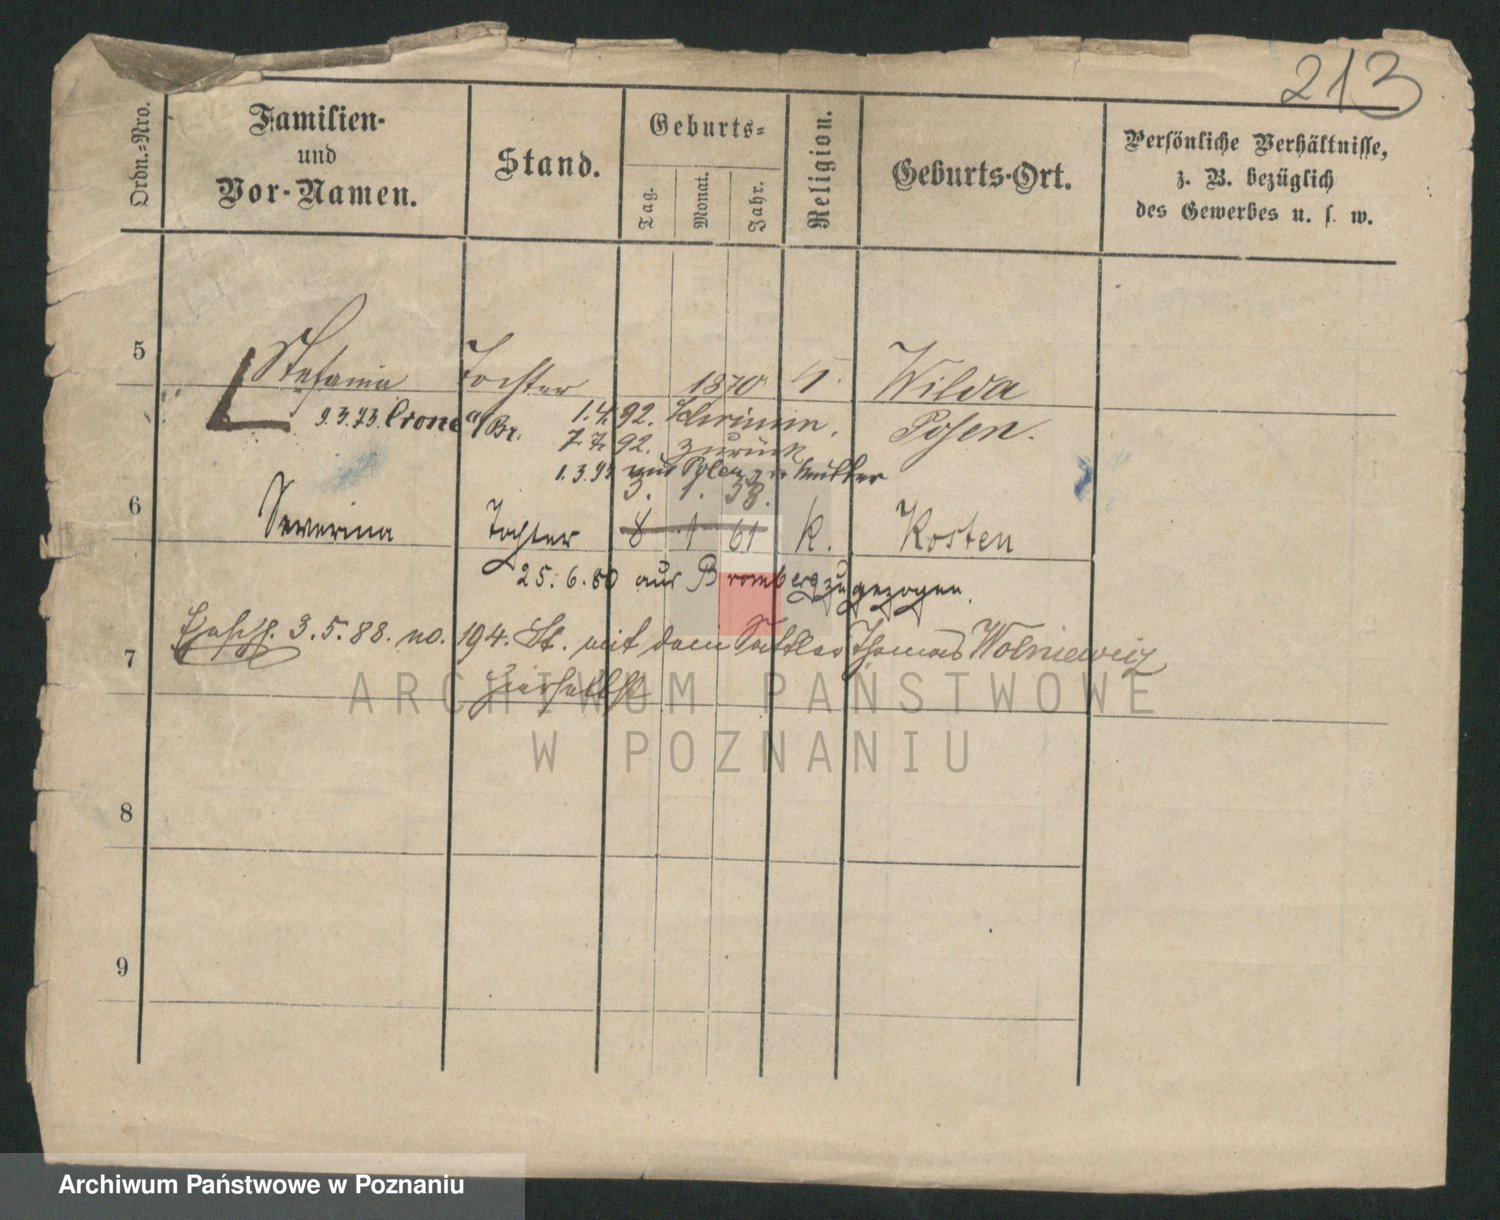 213
Ordn.-Nro.
Familien-
und
Vor-Namen.
Stand.
Geburts-
Tag.
Monat.
Jahr.
Religion.
Geburts-Ort.
Persönliche Verhältnisse,
z. B. bezüglich
des Gewerbes u. s. w.
5 Stefania Tochter 1870 k. Wilda
Posen.
9.3.93. Crone a/Br. 1.4.92.
7.7.92. zurück
1.3.93 aus Polen zur Mutter
3. 1. 58.
6 Severina Tochter 8 1 61 k. Kosten
25.6.80 aus Bromberg zugezogen.
7 3.5.88. no. 194. St. mit dem Sattler Thomas Wolniewicz
hierselbst
8
9
ARCHIWUM PAŃSTWOWE
W POZNANIU
Archiwum Państwowe w Poznaniu